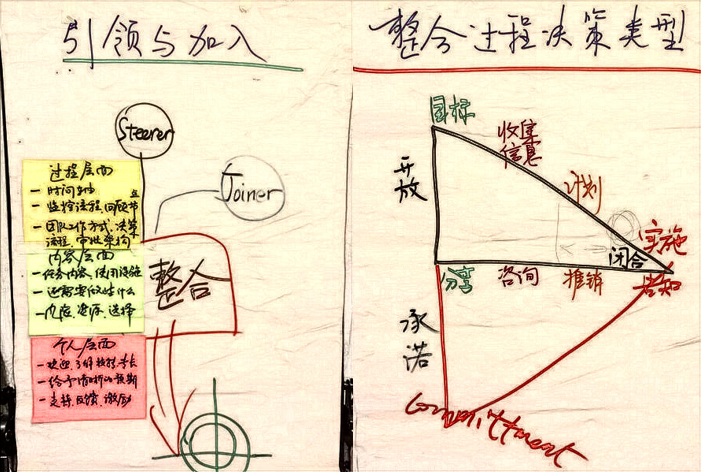 引领与加入
Steerer
Joiner
过程层面
一 时间
一 监控流程、回顾
一 团队工作方式、决策
流程、架构
内容层面
一 任务内容、使用
一 还需要做些什么
一 内容、资源、选择
个人层面
一 欢迎、了解
一 给予清晰的预期
一 支持、反馈、激励
整合
整合过程决策类型
目标
收集
信息
计划
实施
开放
闭合
分享
咨询
推销
告知
承诺
Commitment